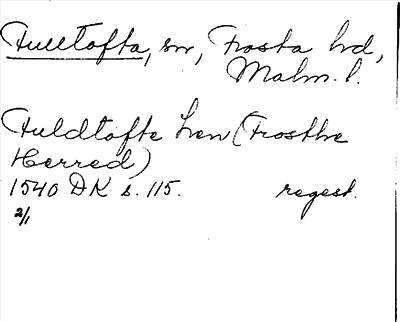 Fulltofta, sn, Frosta hd,
Malm. l.
Fuldtofte Len (Frosthe
Herred)
1540 DK s. 115. regest.
2/1